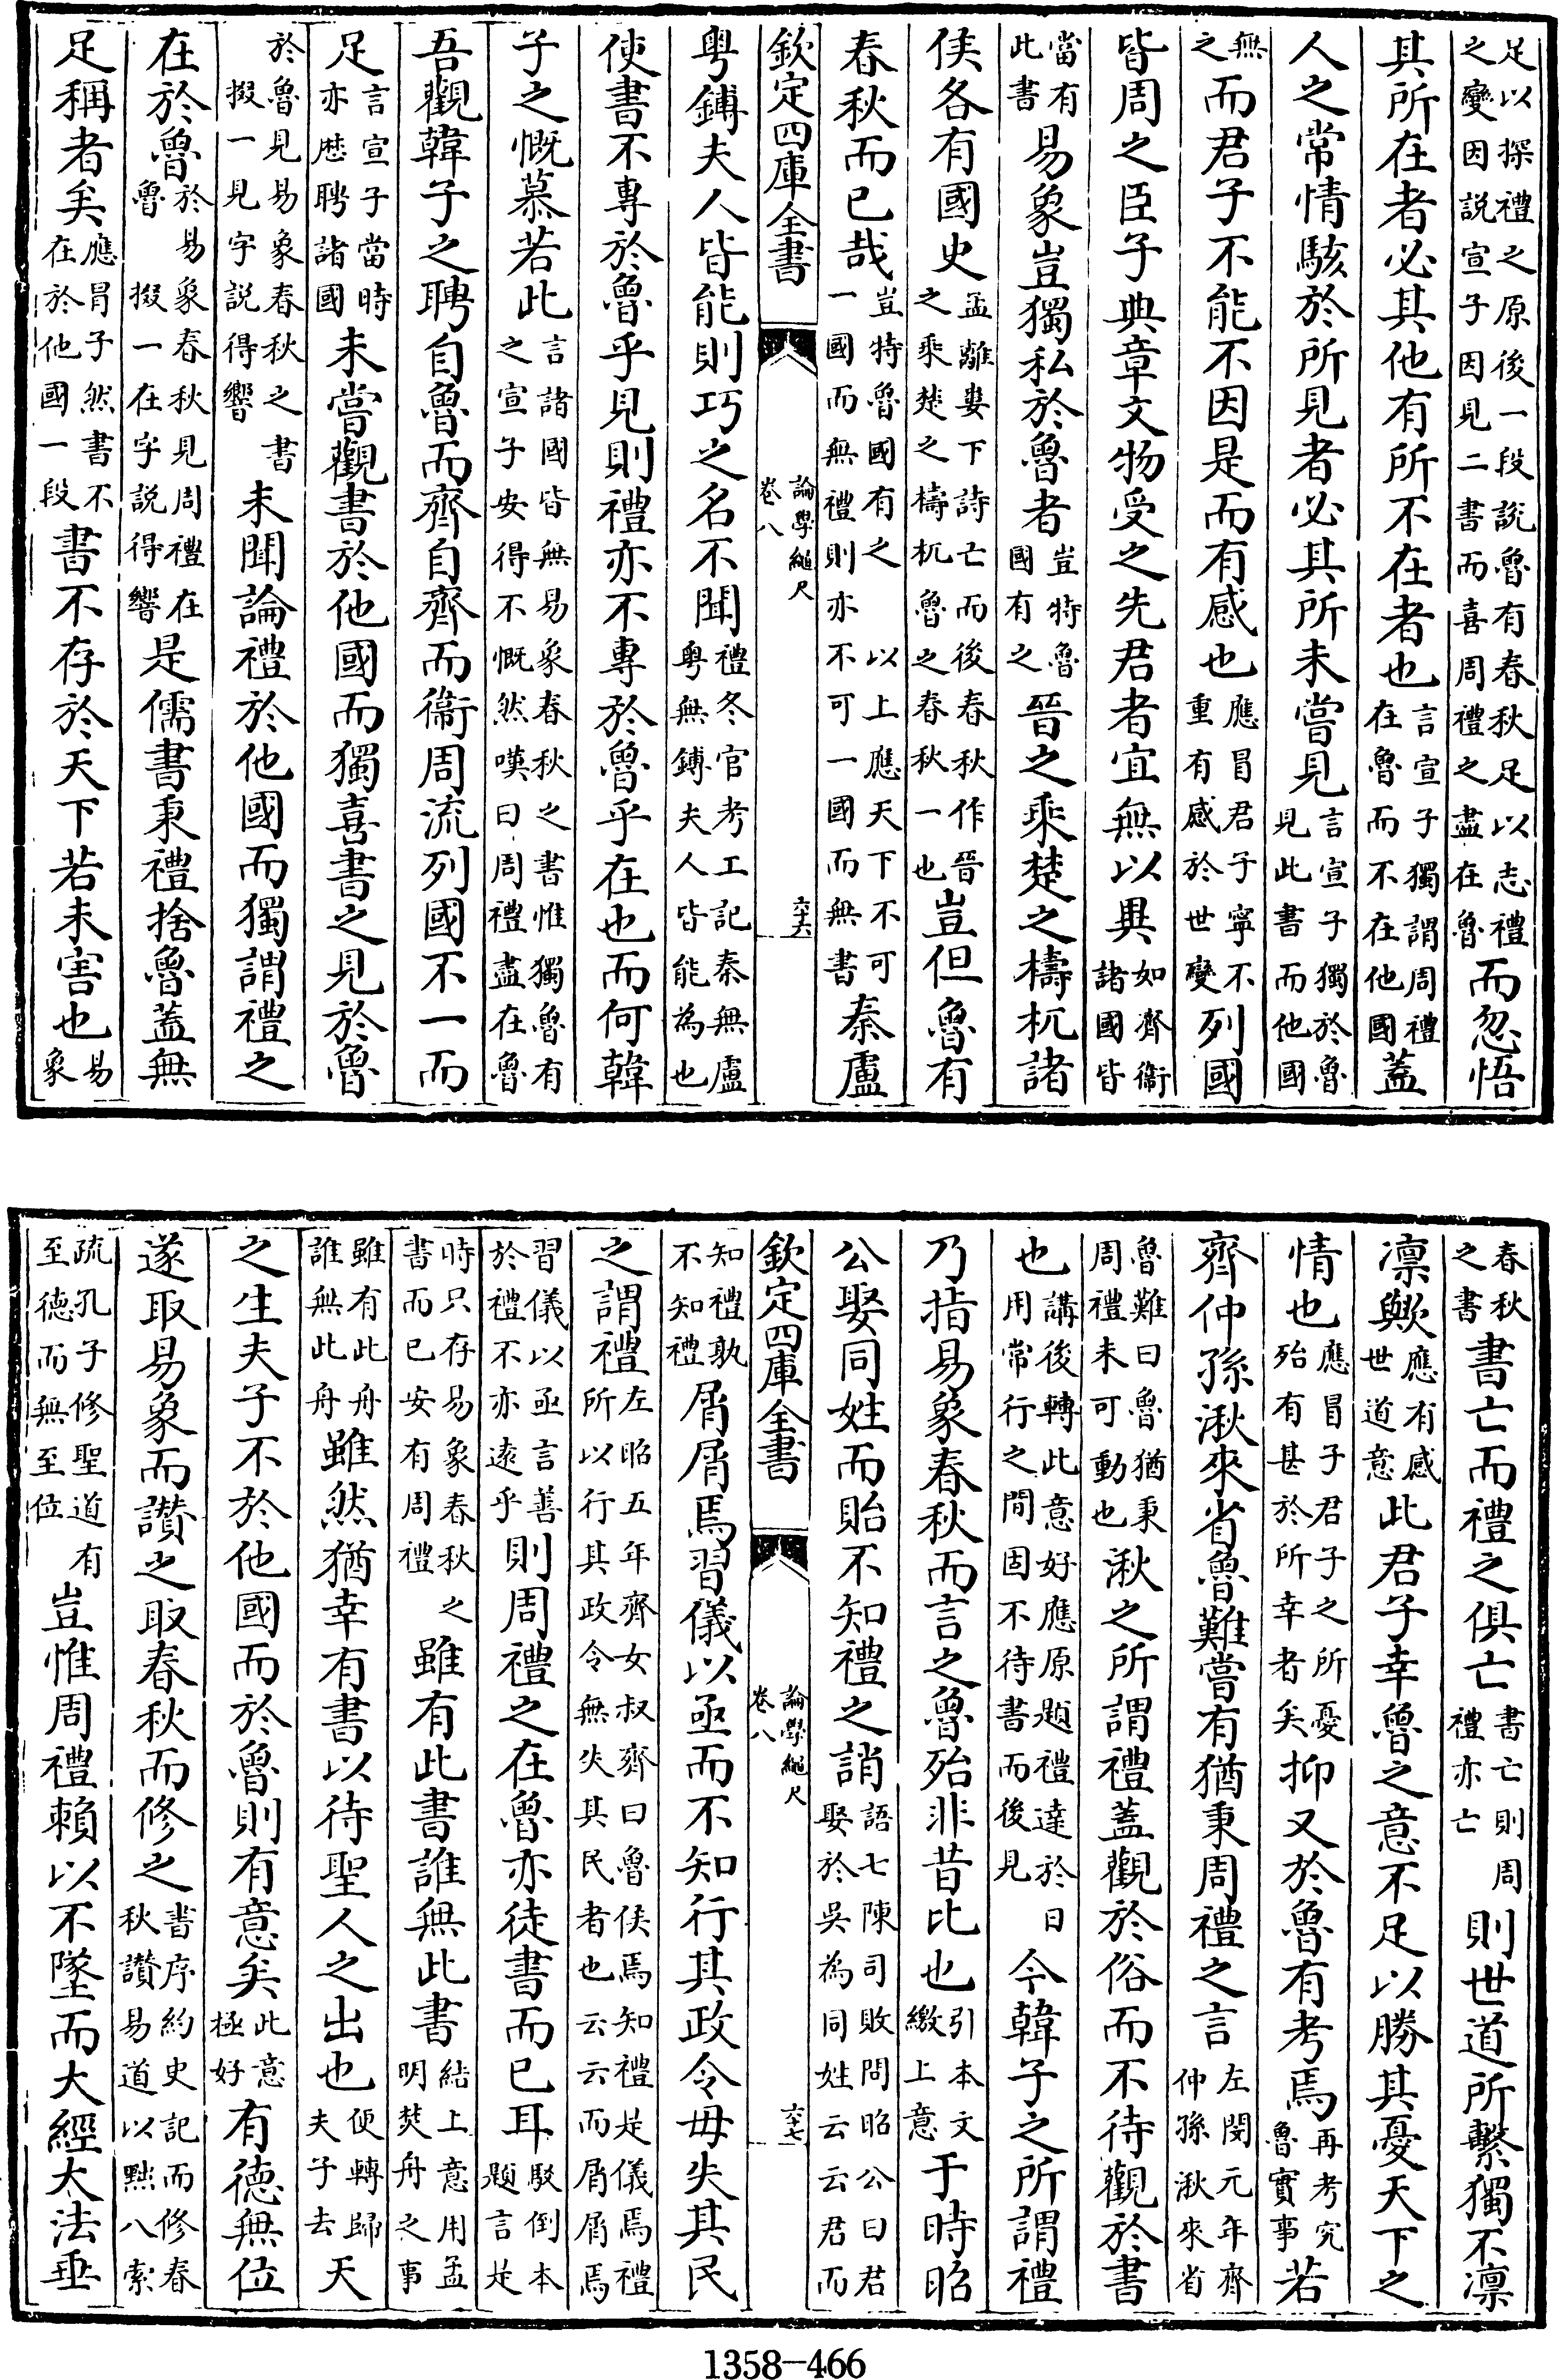 足以探禮之原後一段説魯有春秋足以志禮之變因説宣子因見二書而喜周禮之盡在魯而忽悟
其所在者必其他有所不在者也言宣子獨謂周禮在魯而不在他國蓋
人之常情駭於所見者必其所未嘗見言宣子獨於魯見此書而他國
無之而君子不能不因是而有感也應冒君子寧不重有感於世變列國
皆周之臣子典章文物受之先君者宜無以異如齊衞諸國皆
當有此書易象豈獨私於魯者豈特魯國有之晉之乘楚之檮杌諸
侯各有國史孟離婁下詩亡而後春秋作晉之乘楚之檮杌魯之春秋一也豈但魯有
春秋而已哉豈特魯國有之以上應天下不可一國而無禮則亦不可一國而無書秦盧
欽定四庫全書 論學繩尺 卷八 六十六
粤鏄夫人皆能則巧之名不聞禮冬官考工記秦無盧粤無鏄夫人皆能為也
使書不專於魯乎見則禮亦不專於魯乎在也而何韓
子之慨慕若此言諸國皆無易象春秋之書惟獨魯有之宣子安得不慨然嘆曰周禮盡在魯
吾觀韓子之聘自魯而齊自齊而衞周流列國不一而
足言宣子當時亦歴聘諸國未嘗觀書於他國而獨喜書之見於魯
於魯見易象春秋之書掇一見字説得響未聞論禮於他國而獨謂禮之
在於魯於易象春秋見周禮在魯掇一在字説得響是儒書秉禮捨魯蓋無
足稱者矣應冒子然書不在於他國一段書不存於天下若未害也易象
春秋之書書亡而禮之俱亡書亡則周禮亦亡則世道所繫獨不凛
凛歟應有感世道意此君子幸魯之意不足以勝其憂天下之
情也應冒子君子之所憂殆有甚於所幸者矣抑又於魯有考焉再考究魯實事若
齊仲孫湫來省魯難嘗有猶秉周禮之言左閔元年齊仲孫湫來省
魯難曰魯猶秉周禮未可動也湫之所謂禮蓋觀於俗而不待觀於書
也講後轉此意好應原題禮達於日用常行之間固不待書而後見今韓子之所謂禮
乃指易象春秋而言之魯殆非昔比也引本文繳上意于時昭
公娶同姓而貽不知禮之誚語七陳司敗問昭公曰君娶於吳為同姓云云君而
欽定四庫全書 論學繩尺 卷八 六十七
知禮孰不知禮屑屑焉習儀以亟而不知行其政令毋失其民
之謂禮左昭五年齊女叔齊曰魯侯焉知禮是儀焉禮所以行其政令無失其民者也云云而屑屑焉
習儀以亟言善於禮不亦遠乎則周禮之在魯亦徒書而已耳駁倒本題言是
時只存易象春秋之書而已安有周禮雖有此書誰無此書結上意用孟明焚舟之事
雖有此舟誰無此舟雖然猶幸有書以待聖人之出也便轉歸夫子去天
之生夫子不於他國而於魯則有意矣此意極好有德無位
遂取易象而讃之取春秋而修之書序約史記而修春秋讃易道以黜八索
疏孔子修聖道有至德而無至位豈惟周禮賴以不墜而大經大法垂
1358-466